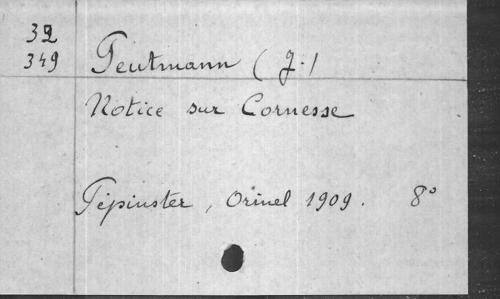 32
349
Peutmann (J.)
Notice sur Cornesse
Pépinster, Orinel 1909. 8°